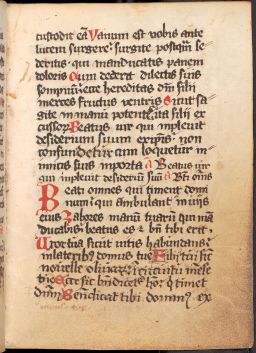 custodit eā Vanum est vobis ante
lucem surgere: surgite postqm se-
deritis qui manducatis panem
doloris Cum dederit dilectis suis
sompnum: ecce hereditas dm̄ filii
merces fructus ventris Sicut sa-
gite in manu potentis: ita filii ex
cussorz Beatus vir qui inpleuit
desiderium suum ex ipsis: non
confundetur cum loquetur in-
imicis suis in porta a Beatus uir
qui inpleuit desideriū suū a Bti om̄s
Beati omnes qui timent domi
num: qui ambulant in uijs
eius Labores manuū tuarū qui mā
ducabis: beatus es et bn̄ tibi erit,
Uxor tua sicut uitis habundans: in
lateribz domus tue Filij tui sic
nouelle oliuarz: in circuitu mense
tue Ecce sic bn̄dicetur ho: qui timet
dūm Benedicat tibi dominus ex